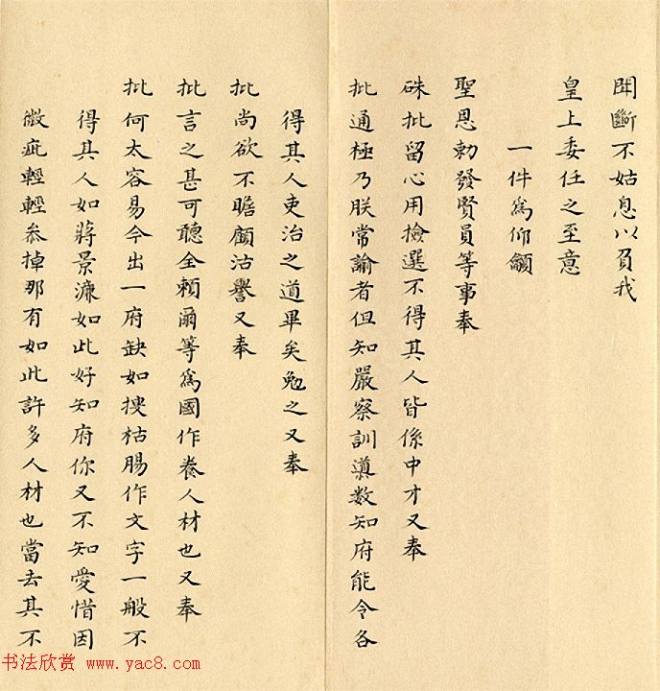 開斷不姑息以負我
皇上委任之至意
一件為仰籲
聖恩勅發賢員等事奉
硃批留心用撿選不得其人皆係中才又奉
批通極乃朕常諭者但知嚴察訓導数知府能令各
得其人吏治之道畢矣勉之又奉
批尚欲不瞻顧沽譽又奉
批言之甚可聽全賴爾等為國作養人材也又奉
批何太容易今出一府缺如搜枯腸作文字一般不
得其人如蔣景濂如此好知府你又不知愛惜因
微疵輕輕叅掉那有如此許多人材也當去其不
书法欣赏 www.yac8.com